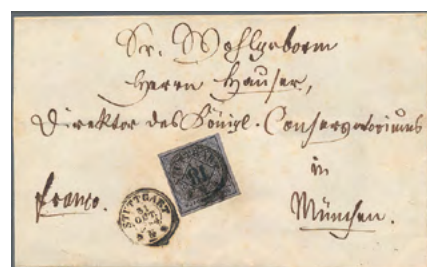 Sr. Wohlgeboren
Herrn Hauser,
Direktor des Königl. Conservatoriums
in
franco.
München.
STUTTGART